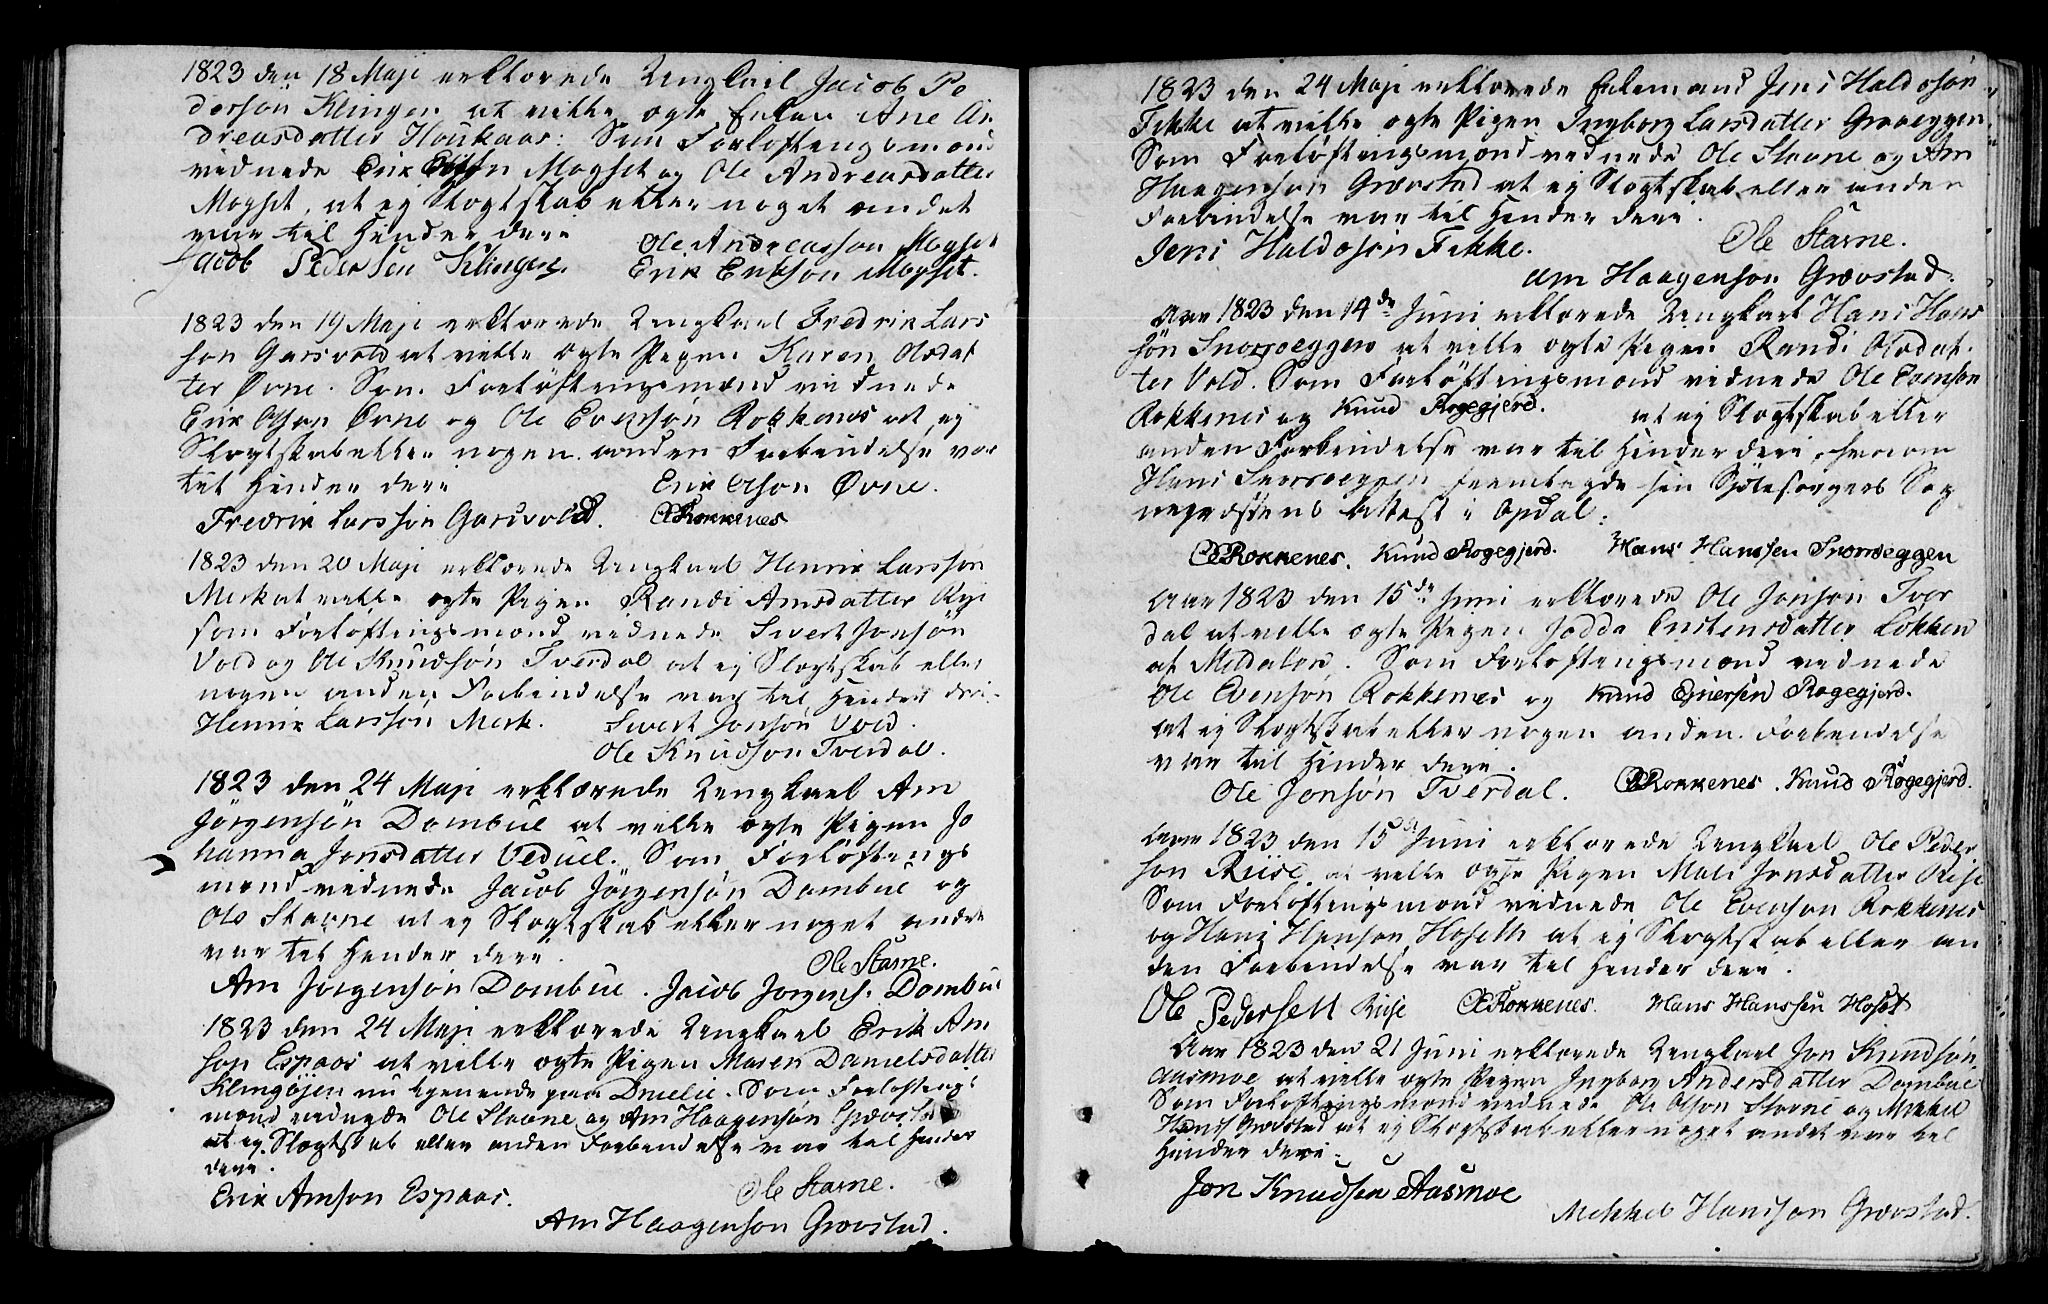 1823 den 18 Maji erklærede Ungkael Jacob Pe
dersön Klingen at ville ægte Enken Ane An
dreasdatter Houkaas: Som Forlöftengsmænd
vednede Erik Ersøn Mogset og Ole Andreasdatter
Mogset, at ej Slægtskab eller noget andet
var til Hinder deri
Ole Andreasson Mogset
Jacob Pedersen Klingen. Erik Erikson Mogset.
1823 den 19 Maji erklærede Ungkael Fredrik Lars
son Garsvold at ville ægte Pigen Karen Olsdat
ter Ovne. Som Forlöftengsmænd vidnede
Erik Olson Ovne og Ole Evensön Rokkenes at ej
Slægtskab eller nogen anden Forbindelse var
til Hinder deri
Erik Olson Ovne.
Fredrik Larsson Garsvold. OERokkenes
1823 den 20 Maji erklærede Ungkael Henrik Larsson
Merk at ville ægte Pigen Randi Arnsdatter Rye
som Forlöftingsmænd vidnede Sivert Jonsön
Vold og Ole Knudsön Tverdal at ej Slægtskab eller
nogen anden Forbindelse var til Hinder deri.
Henrik Larsson Merk. Sivert Jonsön Vold.
Ole Knudson Tverdal.
1823 den 24 Maji erklærede Ungkael Arn
Jörgensön Dombue at ville ægte Pigen Jo
hanna Jonsdatter Veduel. Som Forlöftengs
mænd vidnede Jacob Jörgensön Dombue og
Ole Stavne at ej Slægtskab eller noget andet
var tel Hender deri.
Ole Stavne.
Arn Jörgenson Dombue. Jacob Jörgens. Dombue
1823 den 24 Maji erklærede Ungkael Erik Arn
son Espaas at ville ægte Pigen Maren Danielsdatter
Klingöjen nu tjenende paa Druelie. Som Forloftengs
mænd vednede Ole Stavne og Arn Haagenson Grøvstad
at ej Slægtskab eller anden Forbendelse var tel Hender
deri.
Erik Arnson Espaas. Ole Stavne.
Arn Haagenson Grøvstad.
1823 den 24 Maji erklærede Enkemand Jens Haldosön
Fekke at ville ægte Pigen Ingborg Larsdatter Gravaggen
Som Forlöftengsmænd vednede Ole Stavne og Arn
Haagensøn Grøvstad at ej Slægtskab eller anden
Forbindelse var til Hender deri.
Jens Haldosön Fekke. Ole Stavne.
Arn Haagenson Grøvstad.
Aar 1823 den 14de Juni erklærede Ungkael Hans Hans
sön Snoeggen at ville ægte Pigen Randi Olsdat
ter Vold. Som Forlöftengsmænd vednede Ole Evenson
Rokkenes og Knud Rogegjerd. at ej Slægtskab eller
anden Forbendelse var til Hinder deri, hvorom
Hans Snoeggen frembragde sin Sjölesorgers Sog
nepræstens Attest i Opdal:
OERokkenes. Knud Rogegjerd. Hans Hanssen Snoeggen
Aar 1823 den 15de Juni erklærede Ole Jonsön Tver
dal at ville ægte Pigen Jodda Cristensdatter Lökken
af Meldalen. Som Forlöftingsmænd vednede
Ole Evensön Rokkenes og Knud Enersen Rogegjerd.
at ej Slægtskab eller nogen anden Forbendelse
var til Hinder deri.
Ole Jonsön Tverdal. OERokkenes. Knud Rogegjerd.
Aar 1823 den 15de Juni erklærede Ungkael Ole Peder
son Riise at ville ægte Pigen Mali Jonsdatter Rise
Som Forlöftingsmænd vednede Ole Evenson Rokkenes
og Hans Hanson Hoseth at ej Slægtskab eller an
den Forbendelse var til Hender deri.
Ole Pedersen Riise OERokkenes. Hans Hanssen Hoset
Aar 1823 den 21 Juni erklærede Ungkael Jon Knudsön
Aasmoe at ville ægte Pigen Ingborg Andersdatter Dombue
Som Forlöftengsmænd vednede Ole Olson Stavne og Mekkel
Hans Grøvstad at ej Slægtskab eller noget andet var tel
Hinder deri.
Jon Knudsen Aasmoe
Mekkel Hansson Grøvstad.